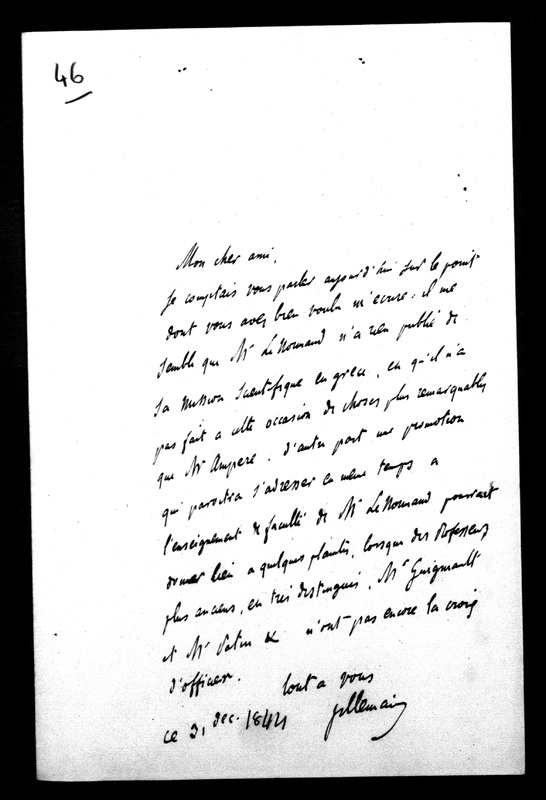 46
Mon cher ami,
je comptais vous parler aujourd'hui sur le point
dont vous avez bien voulu m'ecrire. il me
semble que Mr LeNormand n'a rien publié de
sa mission scientifique en grèce, et qu'il n'a
pas fait a cette occasion de choses plus remarquables
que Mr Ampere. d'autre part une promotion
qui paroitra s'adresser en meme temps a
l'enseignement de faculté de Mr LeNormand pourrait
donner lieu a quelques plaintes, lorsque des Professeurs
plus anciens, et très distingués, Mr Guigniault
et Mr Patin & n'ont pas encore la croix
d'officier.
tout a vous
ce 31 dec. 1844 Villemain